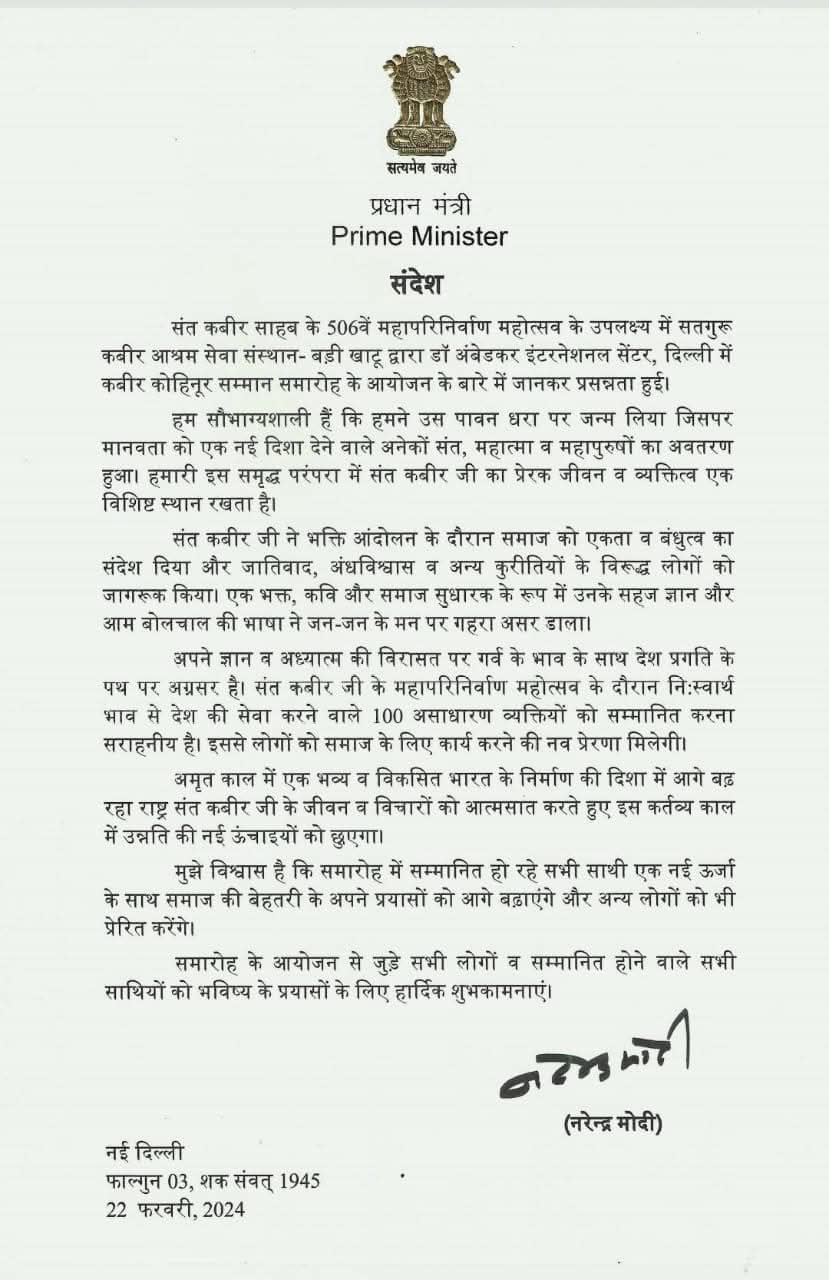 सत्यमेव जयते
प्रधान मंत्री
Prime Minister
संदेश
संत कबीर साहब के 506वें महापरिनिर्वाण महोत्सव के उपलक्ष्य में सतगुरू
कबीर आश्रम सेवा संस्थान- बड़ी खाटू द्वारा डॉ अंबेडकर इंटरनेशनल सेंटर, दिल्ली में
कबीर कोहिनूर सम्मान समारोह के आयोजन के बारे में जानकर प्रसन्नता हुई।
हम सौभाग्यशाली हैं कि हमने उस पावन धरा पर जन्म लिया जिसपर
मानवता को एक नई दिशा देने वाले अनेकों संत, महात्मा व महापुरुषों का अवतरण
हुआ। हमारी इस समृद्ध परंपरा में संत कबीर जी का प्रेरक जीवन व व्यक्तित्व एक
विशिष्ट स्थान रखता है।
संत कबीर जी ने भक्ति आंदोलन के दौरान समाज को एकता व बंधुत्व का
संदेश दिया और जातिवाद, अंधविश्वास व अन्य कुरीतियों के विरूद्ध लोगों को
जागरूक किया। एक भक्त, कवि और समाज सुधारक के रूप में उनके सहज ज्ञान और
आम बोलचाल की भाषा ने जन-जन के मन पर गहरा असर डाला।
अपने ज्ञान व अध्यात्म की विरासत पर गर्व के भाव के साथ देश प्रगति के
पथ पर अग्रसर है। संत कबीर जी के महापरिनिर्वाण महोत्सव के दौरान नि:स्वार्थ
भाव से देश की सेवा करने वाले 100 असाधारण व्यक्तियों को सम्मानित करना
सराहनीय है। इससे लोगों को समाज के लिए कार्य करने की नव प्रेरणा मिलेगी।
अमृत काल में एक भव्य व विकसित भारत के निर्माण की दिशा में आगे बढ़
रहा राष्ट्र संत कबीर जी के जीवन व विचारों को आत्मसात करते हुए इस कर्तव्य काल
में उन्नति की नई ऊंचाइयों को छुएगा।
मुझे विश्वास है कि समारोह में सम्मानित हो रहे सभी साथी एक नई ऊर्जा
के साथ समाज की बेहतरी के अपने प्रयासों को आगे बढ़ाएंगे और अन्य लोगों को भी
प्रेरित करेंगे।
समारोह के आयोजन से जुड़े सभी लोगों व सम्मानित होने वाले सभी
साथियों को भविष्य के प्रयासों के लिए हार्दिक शुभकामनाएं।
नरेन्द्र मोदी
(नरेन्द्र मोदी)
नई दिल्ली
फाल्गुन 03, शक संवत् 1945
22 फरवरी, 2024